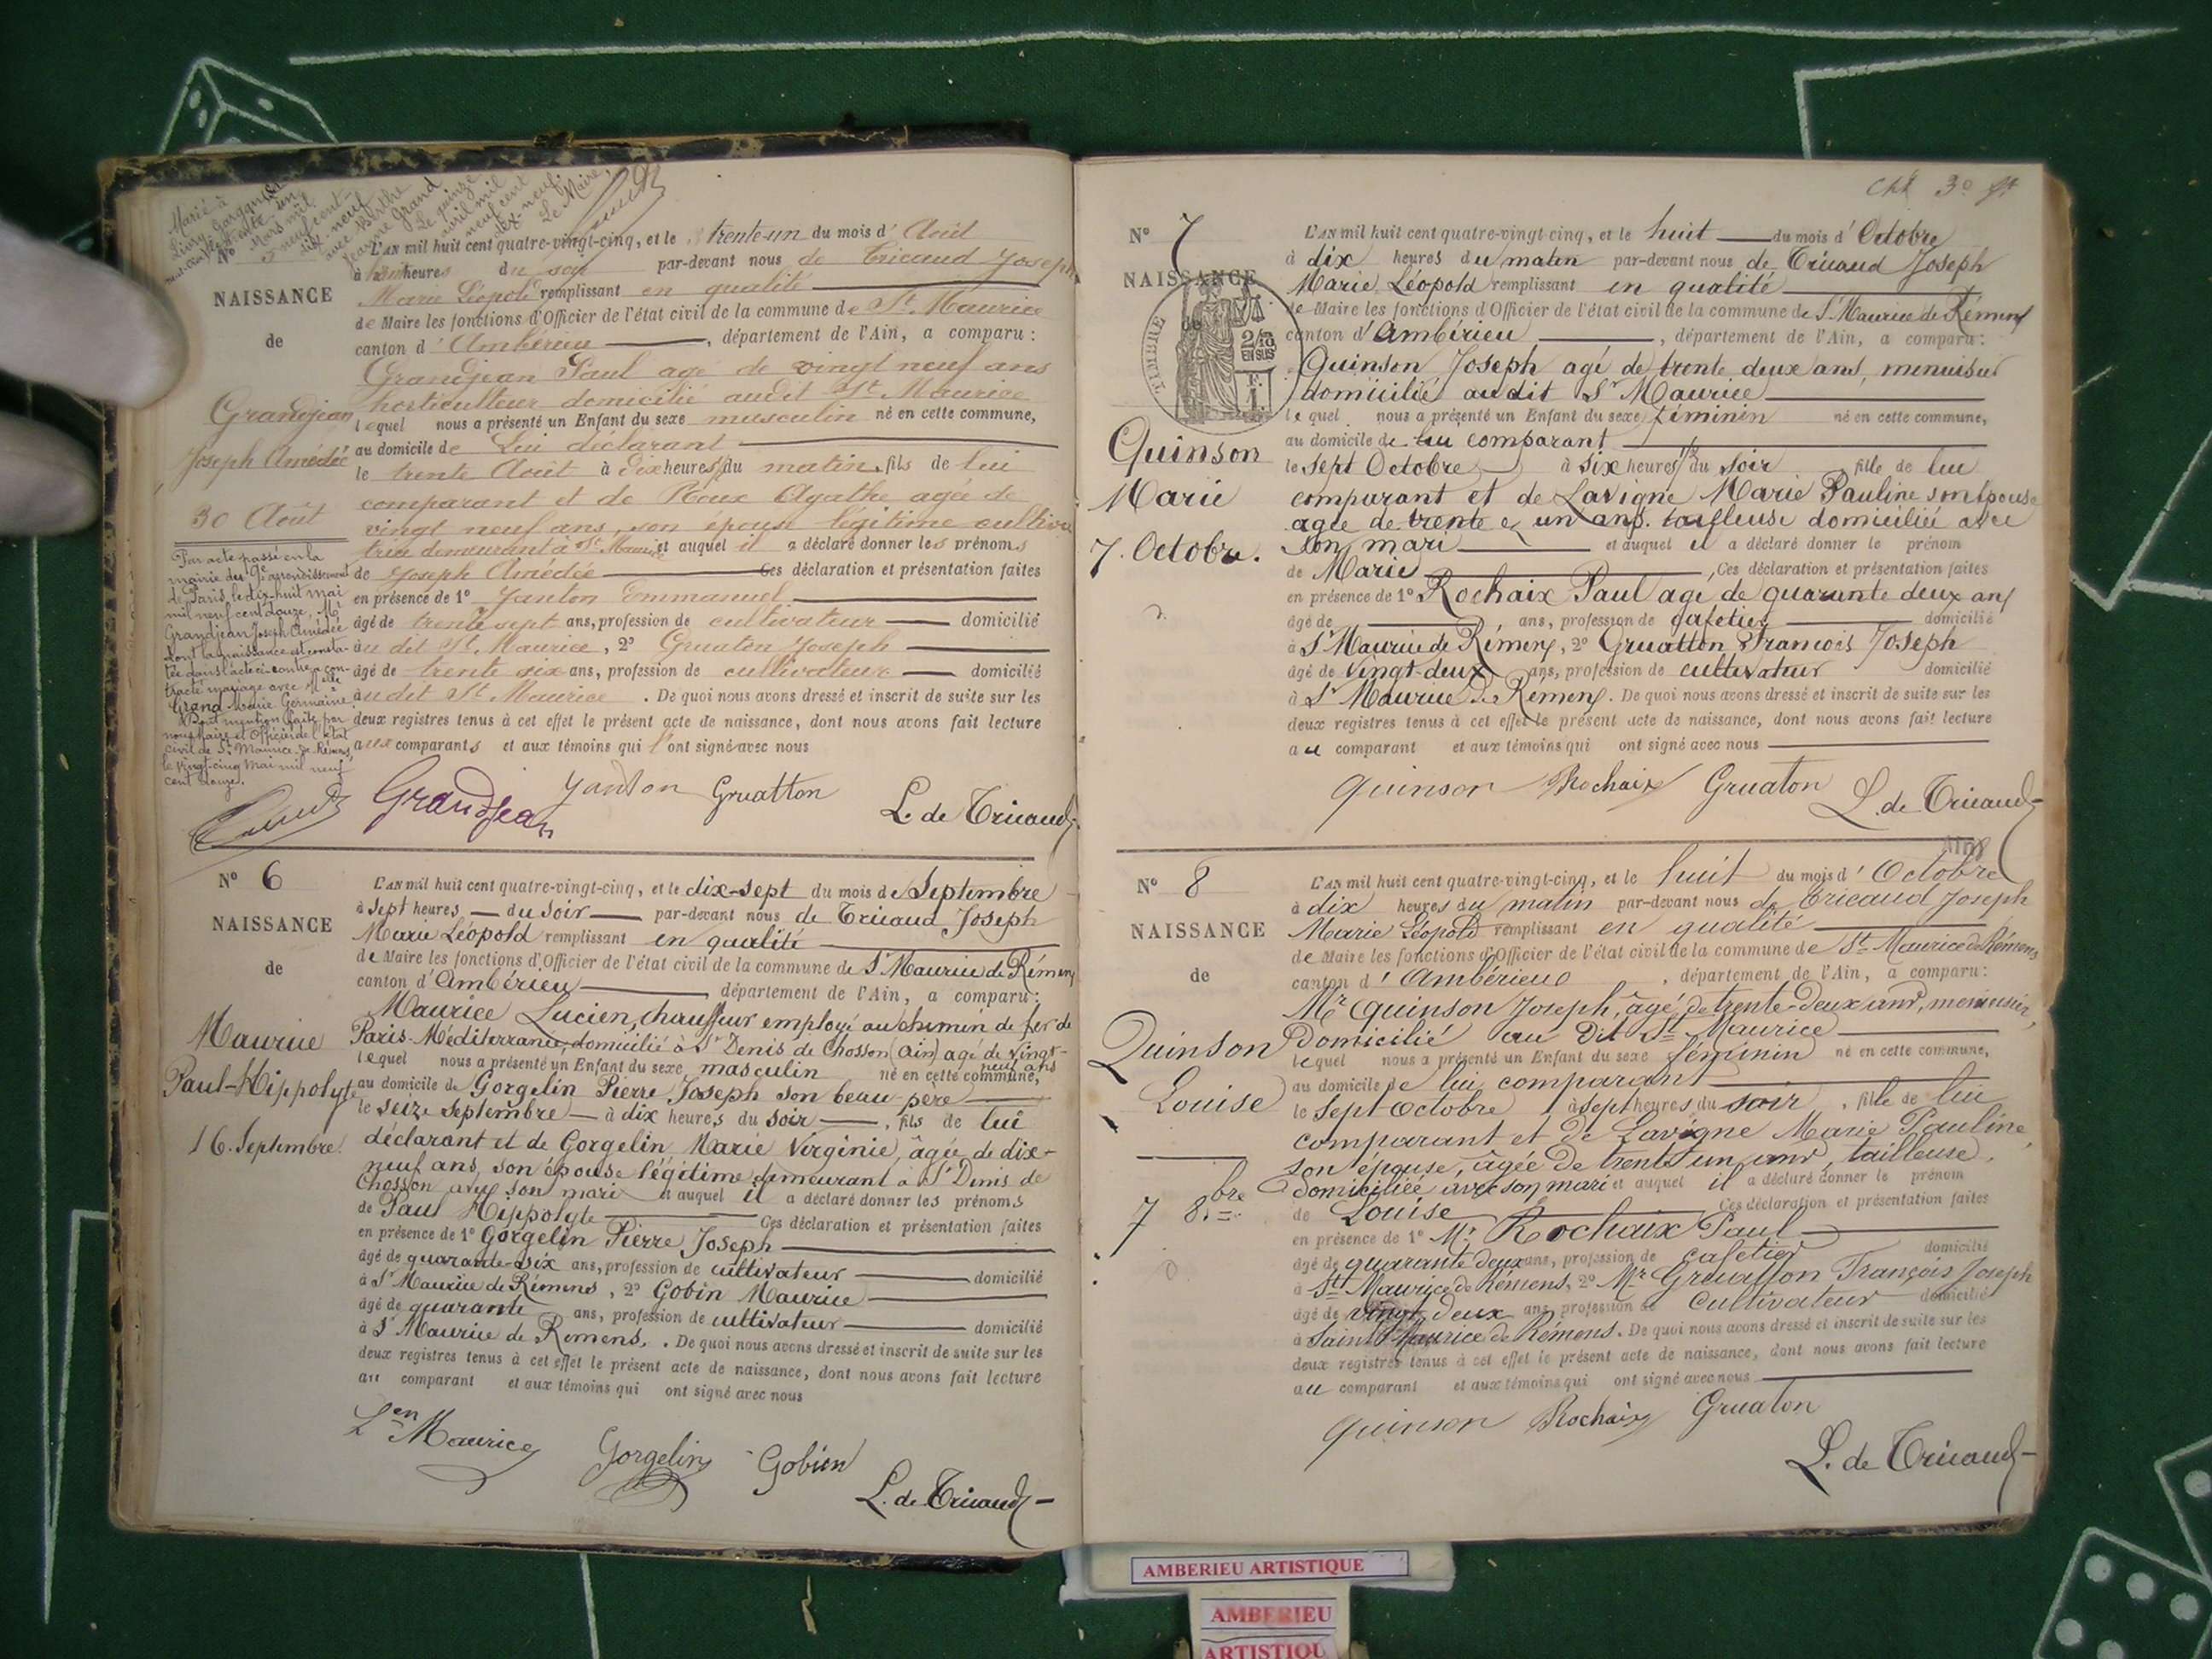 Marié à
Livry-Gargan
le trente un
mars mil
neuf cent
dix-neuf
avec Berthe
Jeanne Grand
Le quinze
avril mil
neuf cent
dix-neuf.
Le Maire,
N° 5
NAISSANCE
de
Grandjean
Joseph Amédée
30 Août
Par acte passé en la
mairie du 9e arrondissement
de Paris, le dix-huit mai
mil neuf cent douze, Mr
Grandjean Joseph Amédée
dont la naissance est consta-
tée dans l'acte ci-contre a con-
tracté mariage avec Melle
Grand Marie Germaine.
Dont mention faite par
nous Maire et Officier de l'état
civil de St Maurice-de-Rémens
le vingt-cinq mai mil neuf
cent douze.
L'AN mil huit cent quatre-vingt-cinq, et le trente-un du mois d'Août
à heures du soir par-devant nous de Tricaud Joseph
Marie Léopold remplissant en qualité
de Maire les fonctions d'Officier de l'état civil de la commune de St Maurice
canton d'Ambérieu, département de l'Ain, a comparu :
Grandjean Paul agé de vingt neuf ans
horticulteur domicilié audit St Maurice
lequel nous a présenté un Enfant du sexe masculin né en cette commune,
au domicile de Lui déclarant
le trente Août à dix heures 1/2 du matin, fils de lui
comparant et de Roux Agathe agée de
vingt neuf ans, son épouse légitime cultiva
trice demeurant à St Maurice et auquel il a déclaré donner les prénoms
de Joseph Amédée Ces déclaration et présentation faites
en présence de 1° Janton Emmanuel
âgé de trente sept ans, profession de cultivateur domicilié
au dit St Maurice, 2° Gruaton Joseph
âgé de trente six ans, profession de cultivateur domicilié
au dit St Maurice. De quoi nous avons dressé et inscrit de suite sur les
deux registres tenus à cet effet le présent acte de naissance, dont nous avons fait lecture
aux comparants et aux témoins qui l'ont signé avec nous
Grandjean Janton Gruatton L. de Tricaud
N° 6
NAISSANCE
de
Maurice
Paul-Hippolyte
16. Septembre.
L'AN mil huit cent quatre-vingt-cinq, et le dix-sept du mois de Septembre
à sept heures du soir par-devant nous de Tricaud Joseph
Marie Léopold remplissant en qualité
de Maire les fonctions d'Officier de l'état civil de la commune de St Maurice de Rémens
canton d'Ambérieu, département de l'Ain, a comparu :
Maurice Lucien, chauffeur employé au chemin de fer de
Paris-Méditerranée, domicilié à St Denis de Chosson (Ain) agé de vingt-
neuf ans
lequel nous a présenté un Enfant du sexe masculin né en cette commune,
au domicile de Gorgelin Pierre Joseph son beau-père
le seize Septembre à dix heures du soir, fils de lui
déclarant et de Gorgelin Marie Virginie, âgée de dix-
neuf ans, son épouse légitime demeurant à St Denis de
Chosson avec son mari et auquel il a déclaré donner les prénoms
de Paul Hippolyte Ces déclaration et présentation faites
en présence de 1° Gorgelin Pierre Joseph
âgé de quarante-six ans, profession de cultivateur domicilié
à St Maurice de Rémens, 2° Gobin Maurice
âgé de quarante ans, profession de cultivateur domicilié
à St Maurice de Remens. De quoi nous avons dressé et inscrit de suite sur les
deux registres tenus à cet effet le présent acte de naissance, dont nous avons fait lecture
au comparant et aux témoins qui ont signé avec nous
Len Maurice Gorgelin Gobin L. de Tricaud
N° 7
NAISSANCE
de
TIMBRE
2/10
EN SUS
Quinson
Marie
7. Octobre.
L'AN mil huit cent quatre-vingt-cinq, et le huit du mois d'Octobre
à dix heures du matin par-devant nous de Tricaud Joseph
Marie Léopold remplissant en qualité
de Maire les fonctions d'Officier de l'état civil de la commune de St Maurice de Rémens
canton d'Ambérieu, département de l'Ain, a comparu :
Quinson Joseph agé de trente deux ans, menuisier
domicilié audit St Maurice
lequel nous a présenté un Enfant du sexe féminin né en cette commune,
au domicile de lui comparant
le sept Octobre à six heures 1/2 du soir, fille de lui
comparant et de Lavigne Marie Pauline son épouse
agée de trente et un ans. tailleuse domiciliée avec
son mari et auquel il a déclaré donner le prénom
de Marie, Ces déclaration et présentation faites
en présence de 1° Rochaix Paul agé de quarante deux ans
âgé de ans, profession de cafetier domicilié
à St Maurice de Rémens, 2° Gruatton Francois Joseph
âgé de vingt-deux ans, profession de cultivateur domicilié
à St Maurice de Remens. De quoi nous avons dressé et inscrit de suite sur les
deux registres tenus à cet effet le présent acte de naissance, dont nous avons fait lecture
au comparant et aux témoins qui ont signé avec nous
Quinson Rochaix Gruaton L. de Tricaud
N° 8
NAISSANCE
de
Quinson
Louise
7 8.bre
L'AN mil huit cent quatre-vingt-cinq, et le huit du mois d'Octobre
à dix heures du matin par-devant nous de Tricaud Joseph
Marie Léopold remplissant en qualité
de Maire les fonctions d'Officier de l'état civil de la commune de St Maurice de Rémens
canton d'Ambérieu, département de l'Ain, a comparu :
Mr Quinson Joseph, âgé de trente-deux ans, menuisier,
Domicilié au Dit St Maurice
lequel nous a présenté un Enfant du sexe féminin né en cette commune,
au domicile de lui comparant
le Sept Octobre à sept heures du soir, fille de lui
comparant et de Lavigne Marie Pauline,
son épouse, âgée de trente un ans, tailleuse,
domiciliée avec son mari et auquel il a déclaré donner le prénom
de Louise Ces déclaration et présentation faites
en présence de 1° Mr Rochaix Paul
âgé de quarante deux ans, profession de cafetier domicilié
à St Maurice de Rémens, 2° Mr Gruatton François Joseph
âgé de vingt deux ans, profession de Cultivateur domicilié
à Saint Maurice de Rémens. De quoi nous avons dressé et inscrit de suite sur les
deux registres tenus à cet effet le présent acte de naissance, dont nous avons fait lecture
au comparant et aux témoins qui ont signé avec nous
Quinson Rochaix Gruaton
L. de Tricaud
AMBERIEU ARTISTIQUE
AMBERIEU
ARTISTIQU